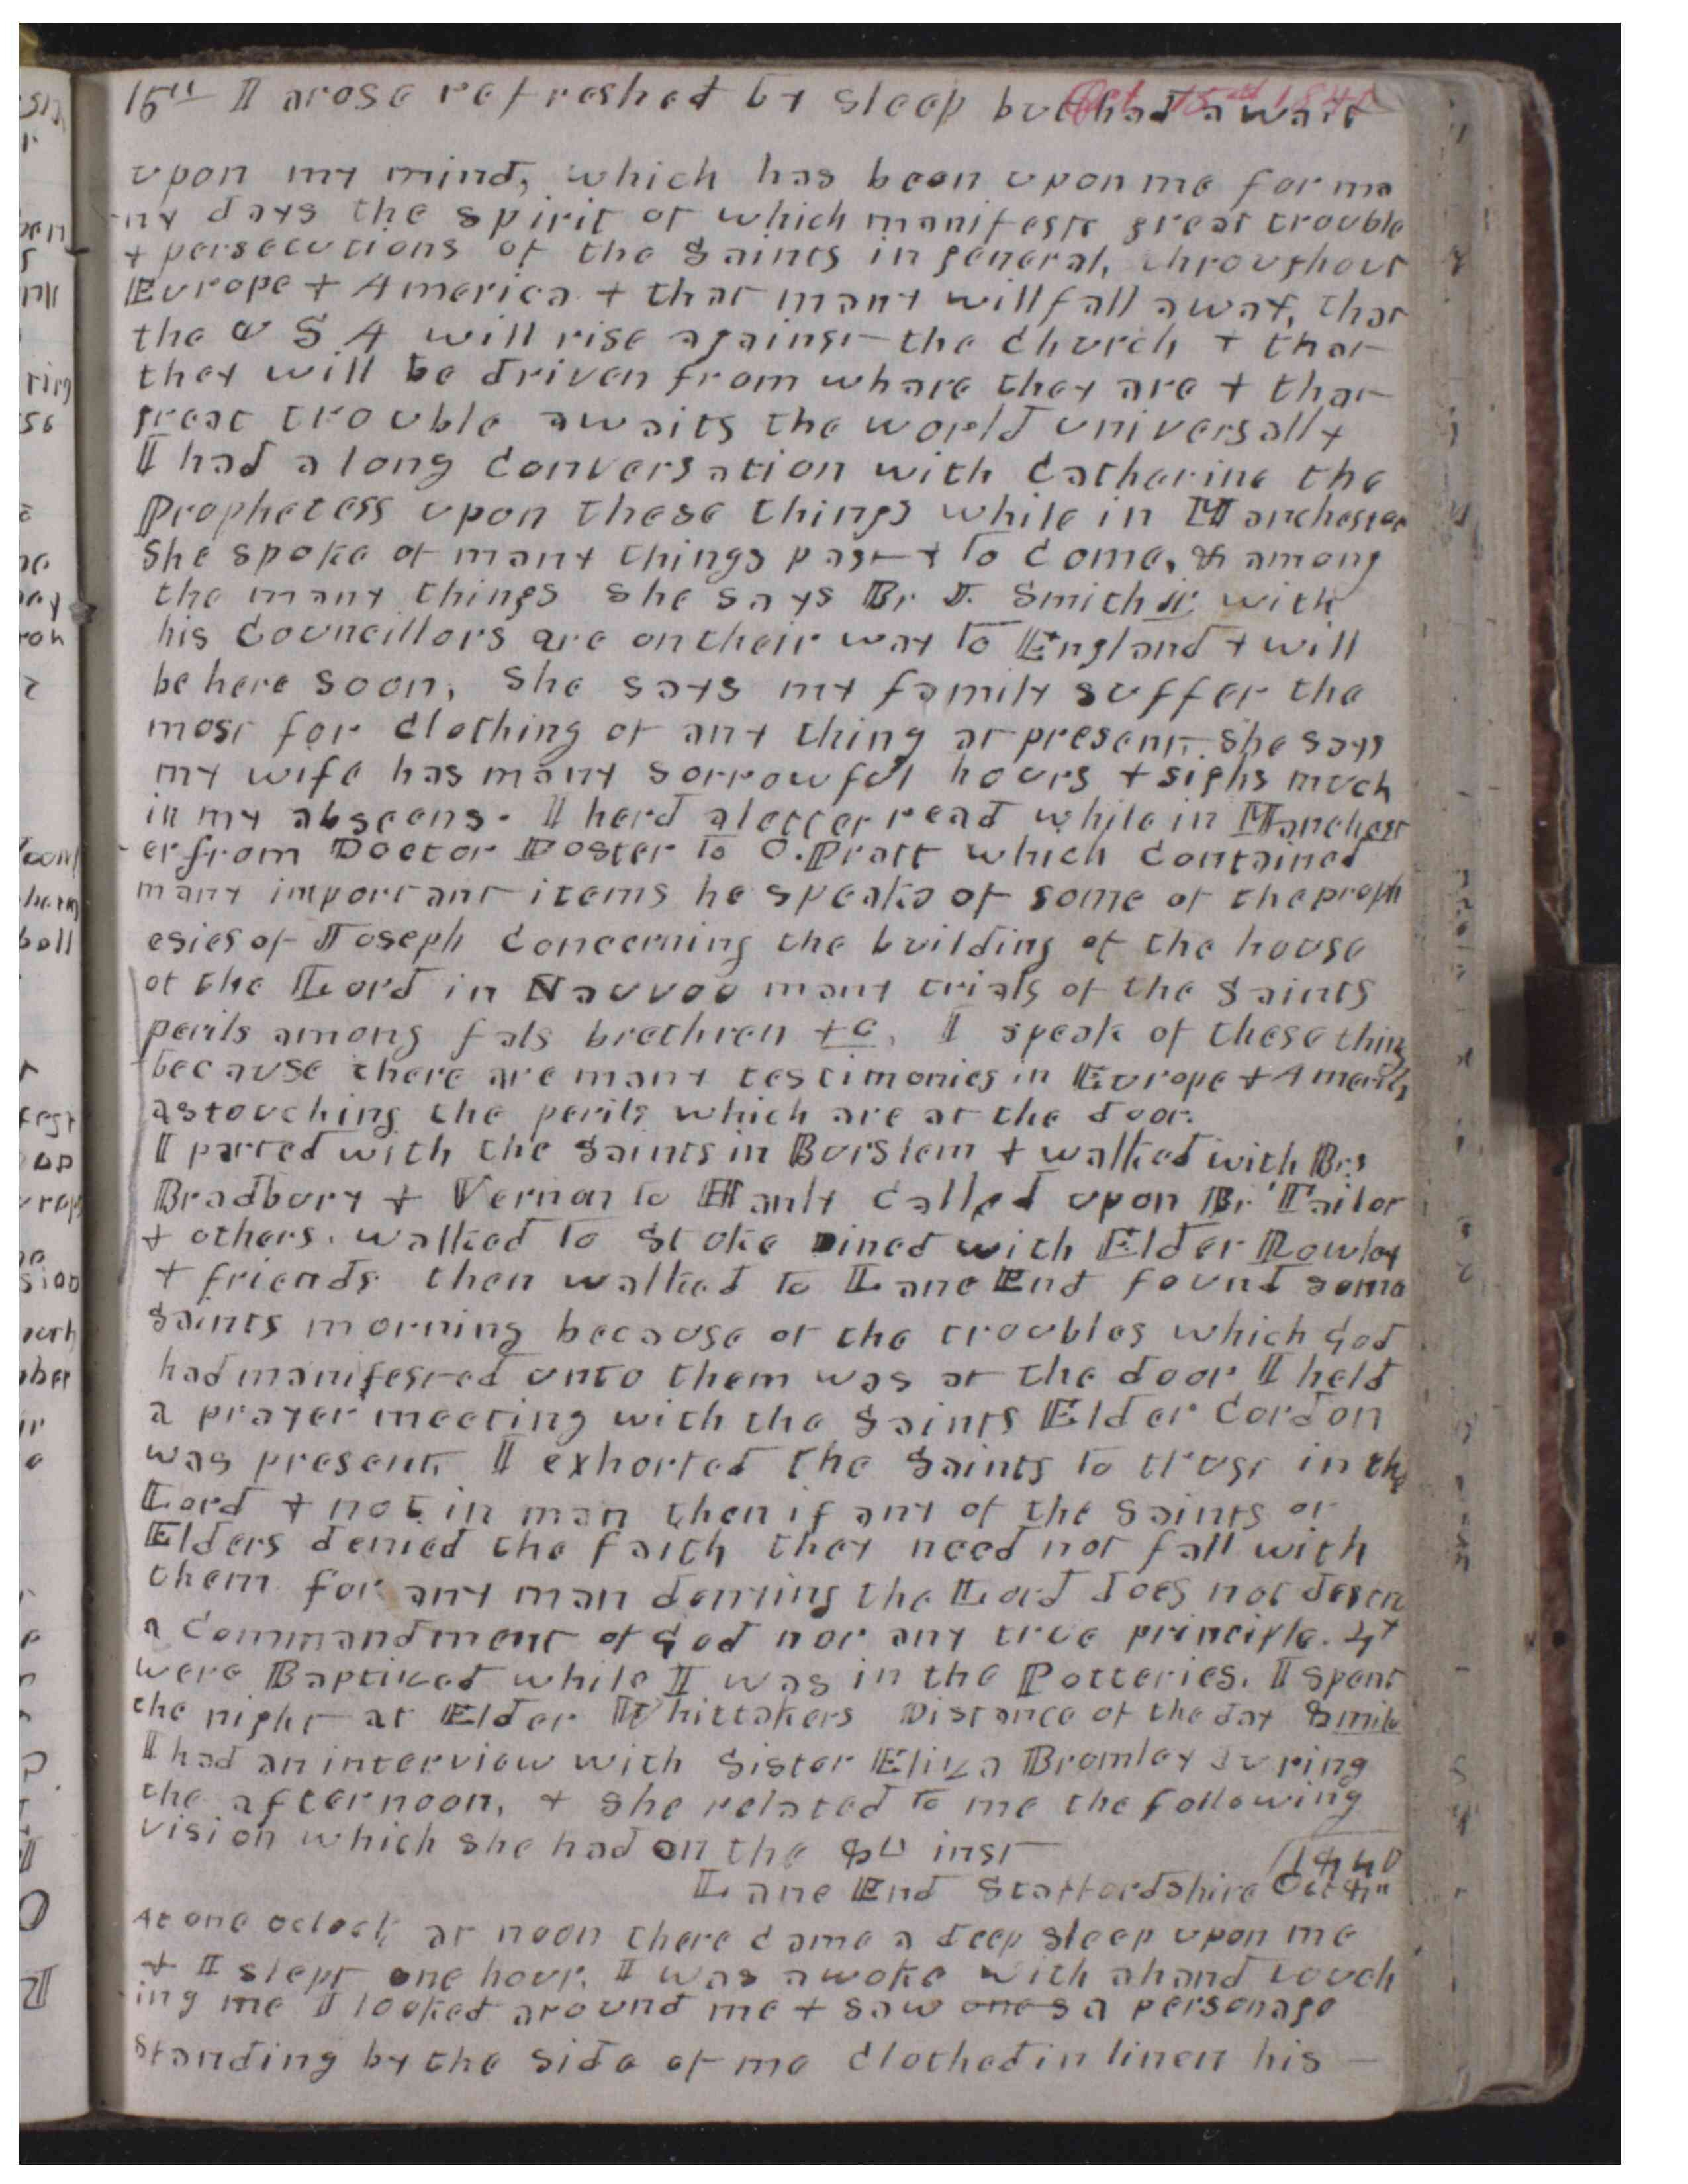 15th I arose refreshed by sleep but had a wait
Oct 15th 1840
upon my mind, which has been upon me for ma
-ny days the spirit of which manifests great trouble
+ persecutions of the Saints in general, throughout
Europe + America + that many will fall away, that
the U S A will rise against the Church + that
they will be driven from whare they are + that
great trouble awaits the world universally
I had a long Conversation with Catherine the
Prophetess upon these things while in Manchester
She spoke of many things past + to Come, & among
the many things she says Br J. Smith jr with
his Councillors are on their way to England + will
be here soon, She says my family suffer the
most for Clothing of any thing at present. She says
my wife has many sorrowful hours + sighs much
in my abseens. I herd a letter read while in Manchest
-er from Doctor Foster to O. Pratt which Contained
many important items he speaks of some of the proph
esies of Joseph Concerning the building of the house
of the Lord in Nauvoo many trials of the Saints
perils among fals brethren +c. I speak of these things
because there are many testimonies in Europe + America
as touching the perils which are at the door.
I parted with the Saints in Burslem + walked with Brs
Bradbury + Vernon to Hanly Called upon Br Tailor
+ others. walked to Stoke Dined with Elder Rowley
+ friends then walked to Lane End found some
Saints morning because of the troubles which God
had manifested unto them was at the door I held
a prayer meeting with the Saints Elder Cordon
was present, I exhorted the Saints to trust in the
Lord + not in man then if any of the Saints or
Elders denied the faith they need not fall with
them for any man denying the Lord does not destroy
a Commandment of God nor any true principle. 4
were Baptized while I was in the Potteries. I spent
the night at Elder Whittakers Distance of the day 8 mile
I had an interview with Sister Eliza Bromley during
the afternoon, + she related to me the following
vision which she had on the 8th inst
1840
Lane End Staffordshire Oct 8th
At one oclock at noon there Came a deep sleep upon me
+ I slept one hour. I was awoke with a hand touch
ing me I looked around me + saw ones a personage
Standing by the side of me Clothed in linen his